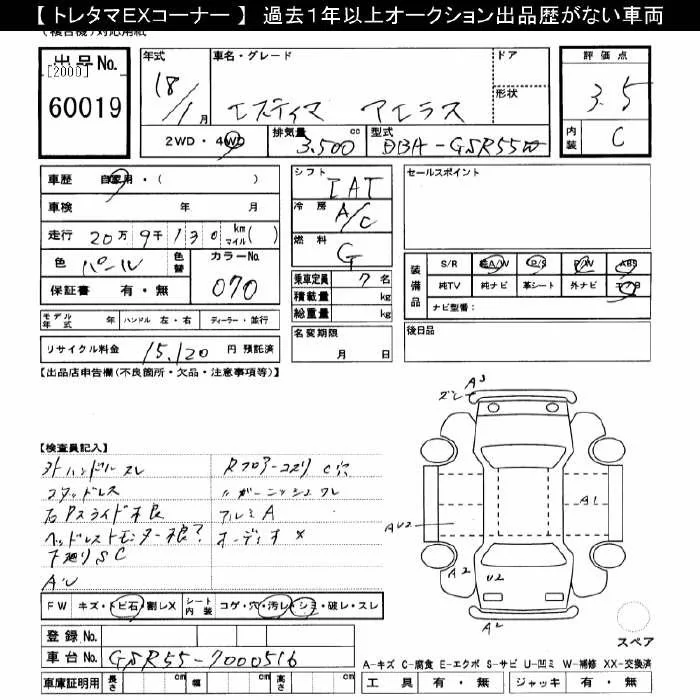 【 トレタマEXコーナー 】 過去1年以上オークション出品歴がない車両
(複合機)対応用紙
出品No.
[2000]
60019
年式
18/1月
車名・グレード
エスティマ アエラス
ドア
形状
2WD・4WD
排気量
3,500 cc
型式
DBA-GSR55W
評価点
3.5
内装
C
車歴 自家用・( )
車検 年 月
走行 20万 9千 130 km マイル( )
色 パール 色替
カラーNo. 070
保証書 有・無
シフト IAT
冷房 A/C
燃料 G
乗車定員 7 名
積載量 kg
総重量 kg
セールスポイント
装備品
S/R 純A/W P/S P/W ABS
純TV 純ナビ 革シート 外ナビ エアB
ナビ型番:
モデル年式 年 ハンドル 左・右 ディーラー・並行
名変期限 月 日
後日品
リサイクル料金 15,120 円 預託済
【出品店申告欄(不良箇所・欠品・注意事項等)】
【検査員記入】
外ハンドルスレ
コタッドレス
右Pスライド不良
ヘッドレストモニター不良?
下廻りSC
AU
Rフロアーコスリ C穴
〃ガーニッシュワレ
アルミA
オーディオ×
ズレ A3
A1
AU2
A2
U2
A2
スペア
FW キズ・トビ石・割レX シート内装 コゲ・穴・汚レ・シミ・破レ・スレ
登録No.
車台No. GSR55-7000516
車庫証明用 長さ cm 幅 cm 高さ cm
A-キズ C-腐食 E-エクボ S-サビ U-凹ミ W-補修 XX-交換済
工具 有・無 ジャッキ 有・無